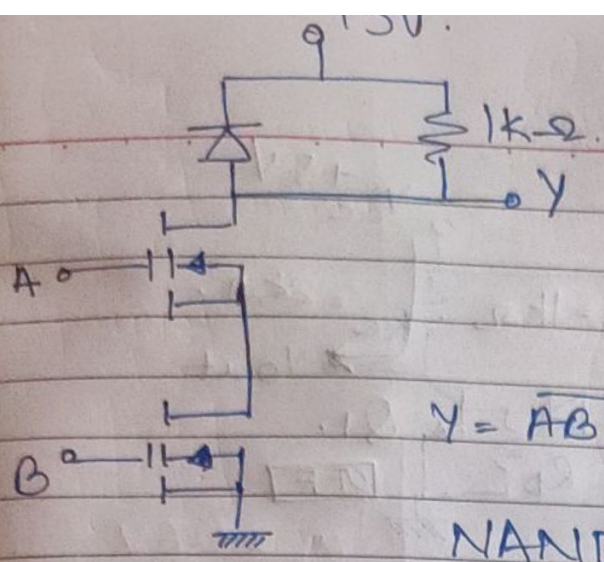 1kΩ.
Y
A
Y = A̅B̅
B
NAND